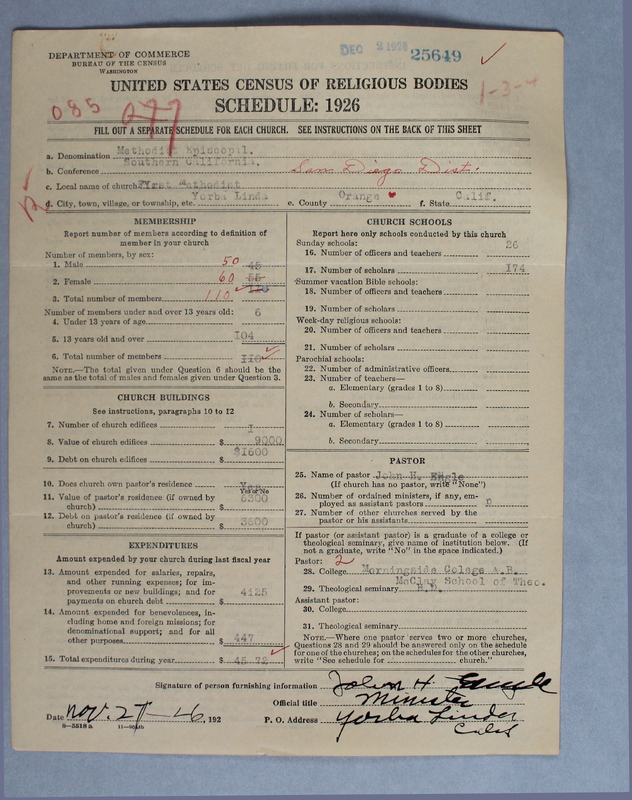 DEPARTMENT OF COMMERCE
BUREAU OF THE CENSUS
WASHINGTON
DEC 2 1926 25649
UNITED STATES CENSUS OF RELIGIOUS BODIES
SCHEDULE: 1926
1-3-4
085 077
FILL OUT A SEPARATE SCHEDULE FOR EACH CHURCH. SEE INSTRUCTIONS ON THE BACK OF THIS SHEET
a. Denomination Methodist Episcopal.
b. Conference Southern California. San Diego Dist.
c. Local name of church First Methodist
d. City, town, village, or township, etc. Yorba Linda e. County Orange f. State Calif.
MEMBERSHIP
Report number of members according to definition of
member in your church
Number of members, by sex:
1. Male 50 45
2. Female 60 55
3. Total number of members 110
Number of members under and over 13 years old:
4. Under 13 years of age 6
5. 13 years old and over 104
6. Total number of members 110
NOTE.—The total given under Question 6 should be the
same as the total of males and females given under Question 3.
CHURCH BUILDINGS
See instructions, paragraphs 10 to 12
7. Number of church edifices 1
8. Value of church edifices $ 9000
9. Debt on church edifices $1600
10. Does church own pastor's residence Yes
Yes or No
11. Value of pastor's residence (if owned by
church) $ 6300
12. Debt on pastor's residence (if owned by
church) $ 3600
EXPENDITURES
Amount expended by your church during last fiscal year
13. Amount expended for salaries, repairs,
and other running expenses; for im-
provements or new buildings; and for
payments on church debt $ 4125
14. Amount expended for benevolences, in-
cluding home and foreign missions; for
denominational support; and for all
other purposes $ 447
15. Total expenditures during year $ 45 72
CHURCH SCHOOLS
Report here only schools conducted by this church
Sunday schools:
16. Number of officers and teachers 26
17. Number of scholars 174
Summer vacation Bible schools:
18. Number of officers and teachers
19. Number of scholars
Week-day religious schools:
20. Number of officers and teachers
21. Number of scholars
Parochial schools:
22. Number of administrative officers
23. Number of teachers—
a. Elementary (grades 1 to 8)
b. Secondary
24. Number of scholars—
a. Elementary (grades 1 to 8)
b. Secondary
PASTOR
25. Name of pastor John H. Engle
(If church has no pastor, write "None")
26. Number of ordained ministers, if any, em-
ployed as assistant pastors 0
27. Number of other churches served by the
pastor or his assistants
If pastor (or assistant pastor) is a graduate of a college or
theological seminary, give name of institution below. (If
not a graduate, write "No" in the space indicated.)
Pastor: 2
28. College Morningside Colege A.B.
McClay School of Theo.
29. Theological seminary B.D.
Assistant pastor:
30. College
31. Theological seminary
NOTE.—Where one pastor serves two or more churches,
Questions 28 and 29 should be answered only on the schedule
for one of the churches; on the schedules for the other churches,
write "See schedule for church."
Signature of person furnishing information John H Engle
Official title Minister
Date Nov. 27 - 26, 192 P. O. Address Yorba Linda
Calif
8—5518 a